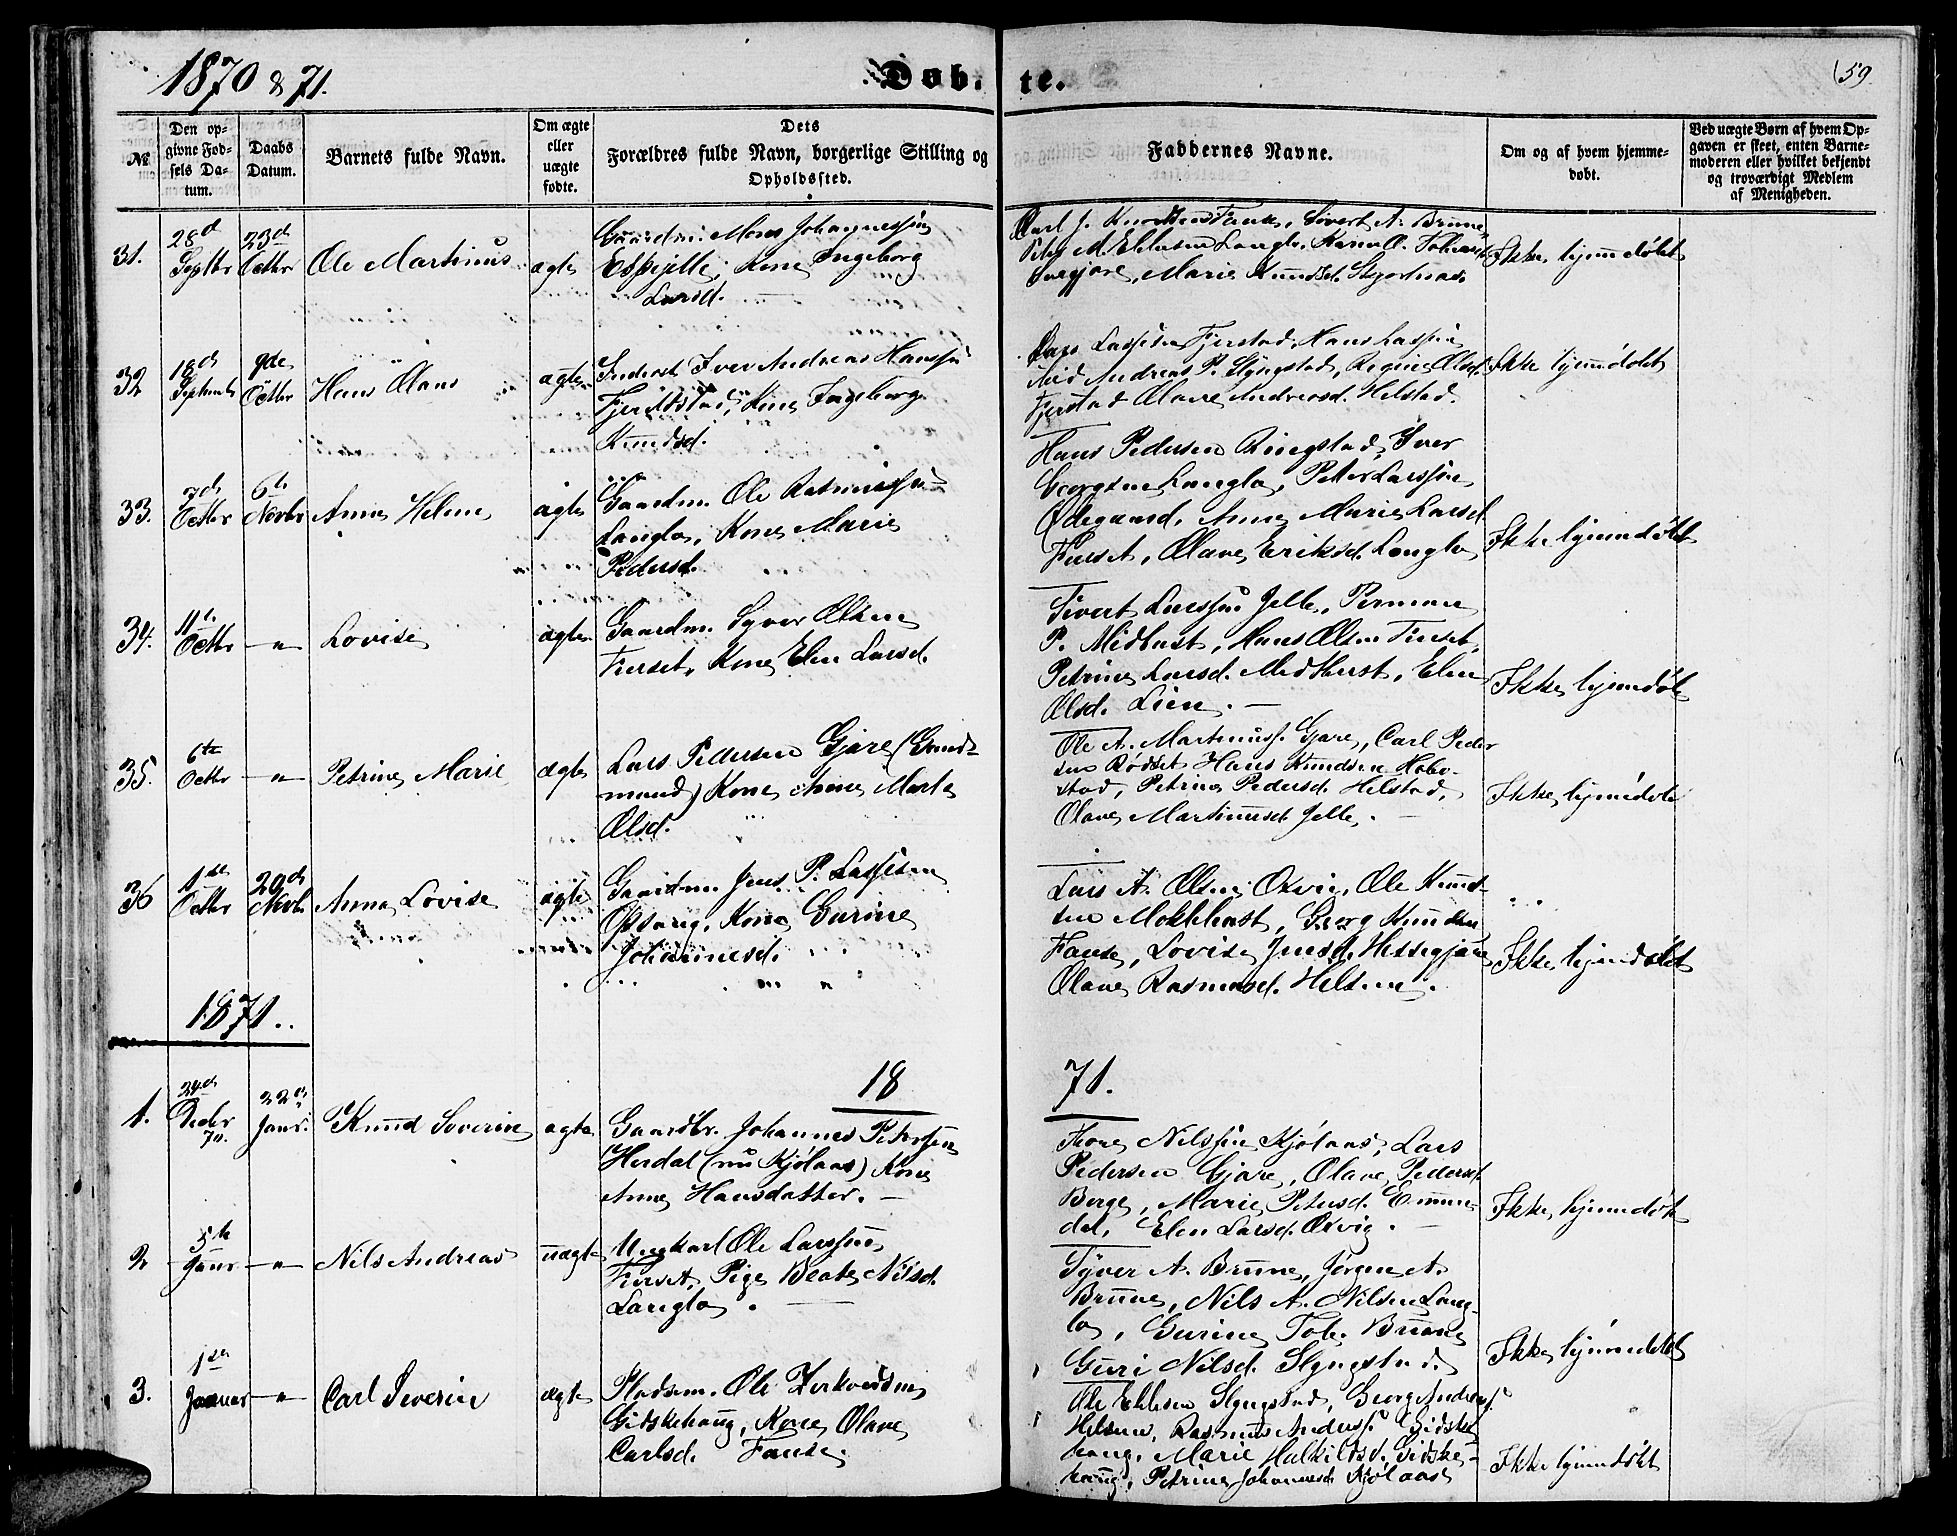 1870 & 71.
Døbte.
59
№
Den opgivne Fødsels Datum.
Daabs Datum.
Barnets fulde Navn.
Om ægte eller uægte fødte.
Dets Forældres fulde Navn, borgerlige Stilling og Opholdssted.
Faddernes Navne.
Om og af hvem hjemmedøbt.
Ved uægte Børn af hvem Opgaven er skeet, enten Barnemoderen eller hvilket bekjendt og troværdigt Medlem af Menigheden.
31.
28d Septbr
23d Octbr
Ole Martinus
ægte
Gaardm. Mons Johannessen
Eskjelle, Kone Ingeborg
Larsd.
Carl J. Knudsen Fause, Sivert A. Brune,
Langlo, Karen O.
Marie Knudsd.
Ikke hjemdøbt
32
18d Septemb
9de Octbr
Hans Olaus
ægte
Inderst Iver Andreas Hanssen
Fjeldstad, Kone Ingeborg
Knudsd.
Lars Larssen Fjerstad, Hans Larssen
Andreas P. Slyngstad, Regine Olsd.
Fjerstad Olave Andreasd. Helstad.
Ikke hjemdøbt
33.
7d Octbr
6te Novbr
Anne Heline
ægte
Gaardm. Ole Rasmussen
Langlo, Kone Marie
Pedersd.
Hans Pedersen Ringstad, Iver
Georgsen Langlo, Petter Larssen
Ødegaard, Anne Marie Larsd.
Furset, Olave Eriksd. Langlo
Ikke hjemmdøbt
34.
11te Octbr
— " —
Lovise
ægte
Gaardm. Syver Olsen
Furset, Kone Elen Larsd.
Sivert Larssen Jelle,
P. Midhust, Hans Olsen Furset,
Petrine Larsd. Midthust, Elen
Olsd. Lien. —
Ikke hjemdøbt
35.
6te Octbr
— " —
Petrine Marie
ægte
Lars Pedersen Gjære (Gaard-
mand) Kone Anne Marte
Olsd.
Ole A. Martinuss. Gjære, Carl Peder
sen Rødset Hans Knudsen Hove-
stad, Petrine Pedersd. Helstad,
Olave Martinusd. Jelle. —
Ikke hjemdøbt
36
1ste Octbr
20d Novb.
Anna Lovise
ægte
Gaardm. Jens P. Larssen
Kone Gurine
Johannesd.
Lars A. Olsen Oxvig, Ole Knud-
sen Moldhust, Georg Knudsen
Fause, Lovise Jensd. Hessegjære
Olave Rasmusd. Helsem.
Ikke hjemdøbt
1871.
18
71.
1.
Decbr 70.
22d Janr.
Knud Severin
ægte
Gaardbr. Johannes Petersen
Herdal (nu Kjølaas) Kone
Anne Hansdatter. —
Tore Nilssen Kjølaas, Lars
Pedersen Gjære, Olave Pedersd.
Berge, Marie Petersd. Emmer-
dal, Elen Larsd. Oxvig. —
Ikke hjemdøbt
2
5te Janr
— " —
Nils Andreas
uægte
Ungkarl Ole Larssen
Furset, Pige Beate Nilsd.
Langlo. —
Syver A. Brune, Jørgen A.
Brune, Nils A. Nilsen Lang-
lo, Gurine Tob. Brune
Guri Nilsd. Slyngstad.
Ikke hjemmdøbt
3.
1ste Januar
— " —
Carl Severin
ægte
Pladsm. Ole
Gidskehaug, Kone Olave
Carlsd. Fause.
Ole Ellesen Slyngstad, Georg Andreass.
Helsem, Rasmus Anderss. Gidske
haug, Marie Halkildsd. Gidske-
haug, Petrine Johannesd. Kjølaas
Ikke hjemmdøbt